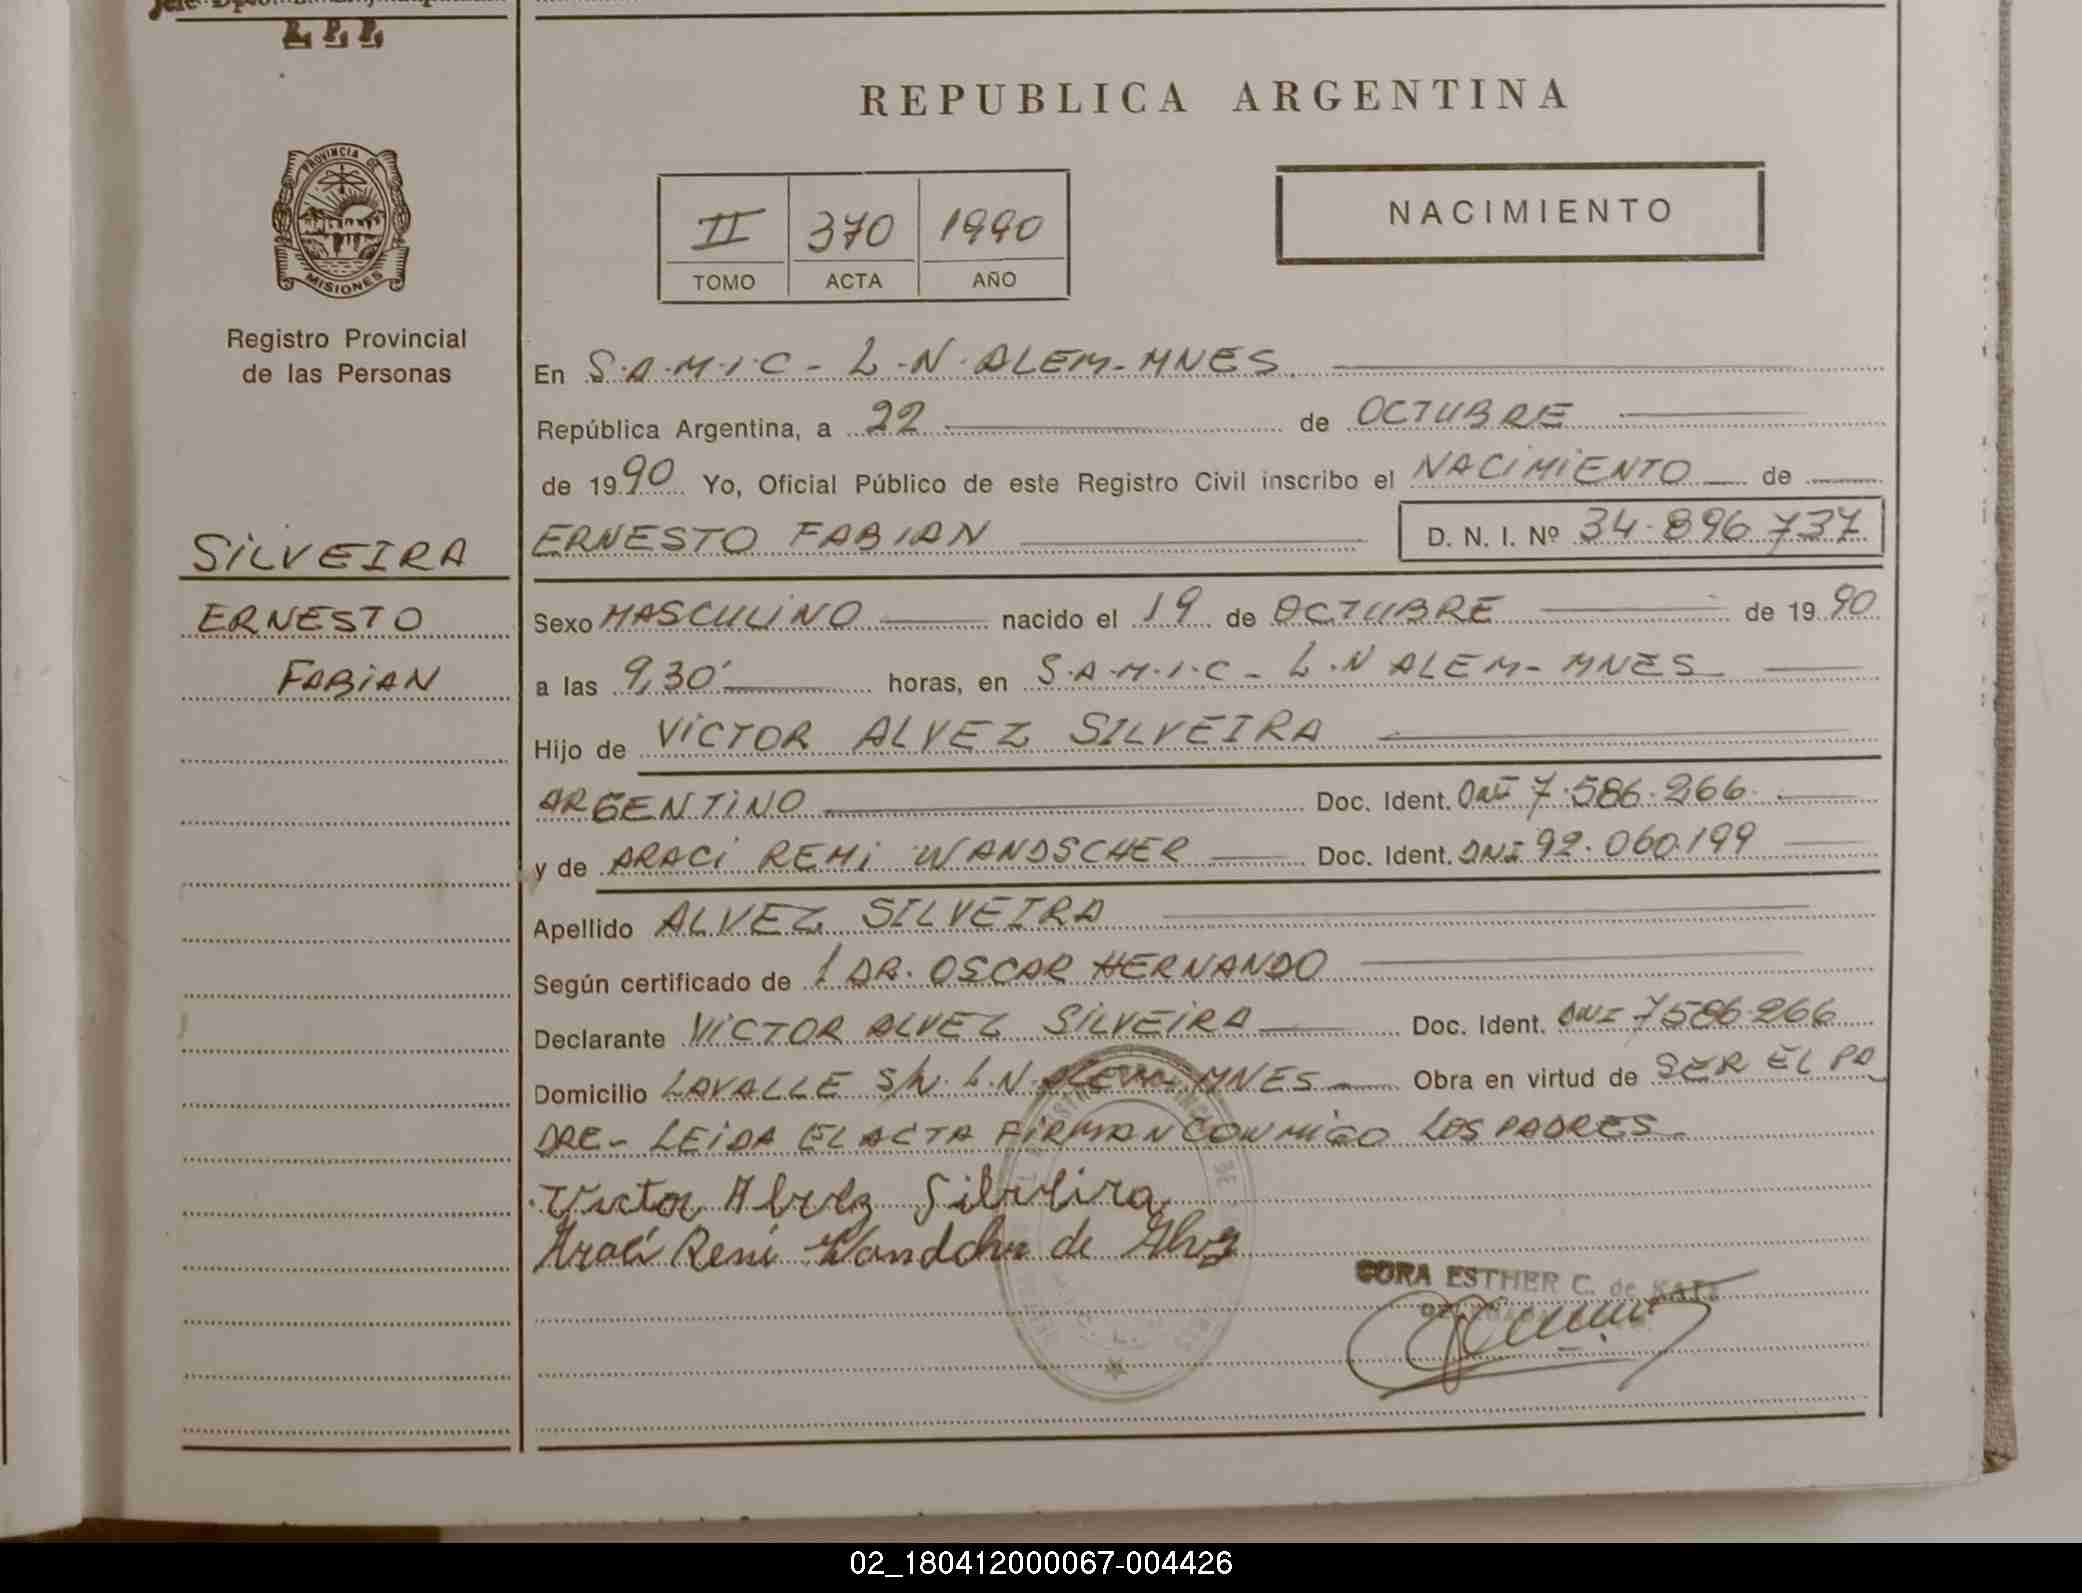 REPUBLICA ARGENTINA
PROVINCIA DE
MISIONES
Registro Provincial
de las Personas
SILVEIRA
ERNESTO
FABIAN
II 370 1990
TOMO ACTA AÑO
NACIMIENTO
En S.A.M.I.C - L.N. ALEM-MNES.
República Argentina, a 22 de OCTUBRE
de 1990 Yo, Oficial Público de este Registro Civil inscribo el NACIMIENTO de
ERNESTO FABIAN D. N. I. Nº 34.896.737
Sexo MASCULINO nacido el 19 de OCTUBRE de 1990
a las 9,30' horas, en S.A.M.I.C - L.N ALEM - MNES
Hijo de VICTOR ALVEZ SILVEIRA
ARGENTINO Doc. Ident. DNI 7.586.266.
y de ARACI REMI WANDSCHER Doc. Ident. DNI 92.060.199
Apellido ALVEZ SILVEIRA
Según certificado de 1 DR. OSCAR HERNANDO
Declarante VICTOR ALVEZ SILVEIRA Doc. Ident. DNI 7586266
Domicilio LAVALLE S/N. L.N. ALEM - MNES Obra en virtud de SER EL PA
DRE - LEIDA EL ACTA FIRMAN CONMIGO LOS PADRES.
Victor Alvez Silveira
Araci Remi Wandcher de Alvez
CORA ESTHER C. de
02_180412000067-004426